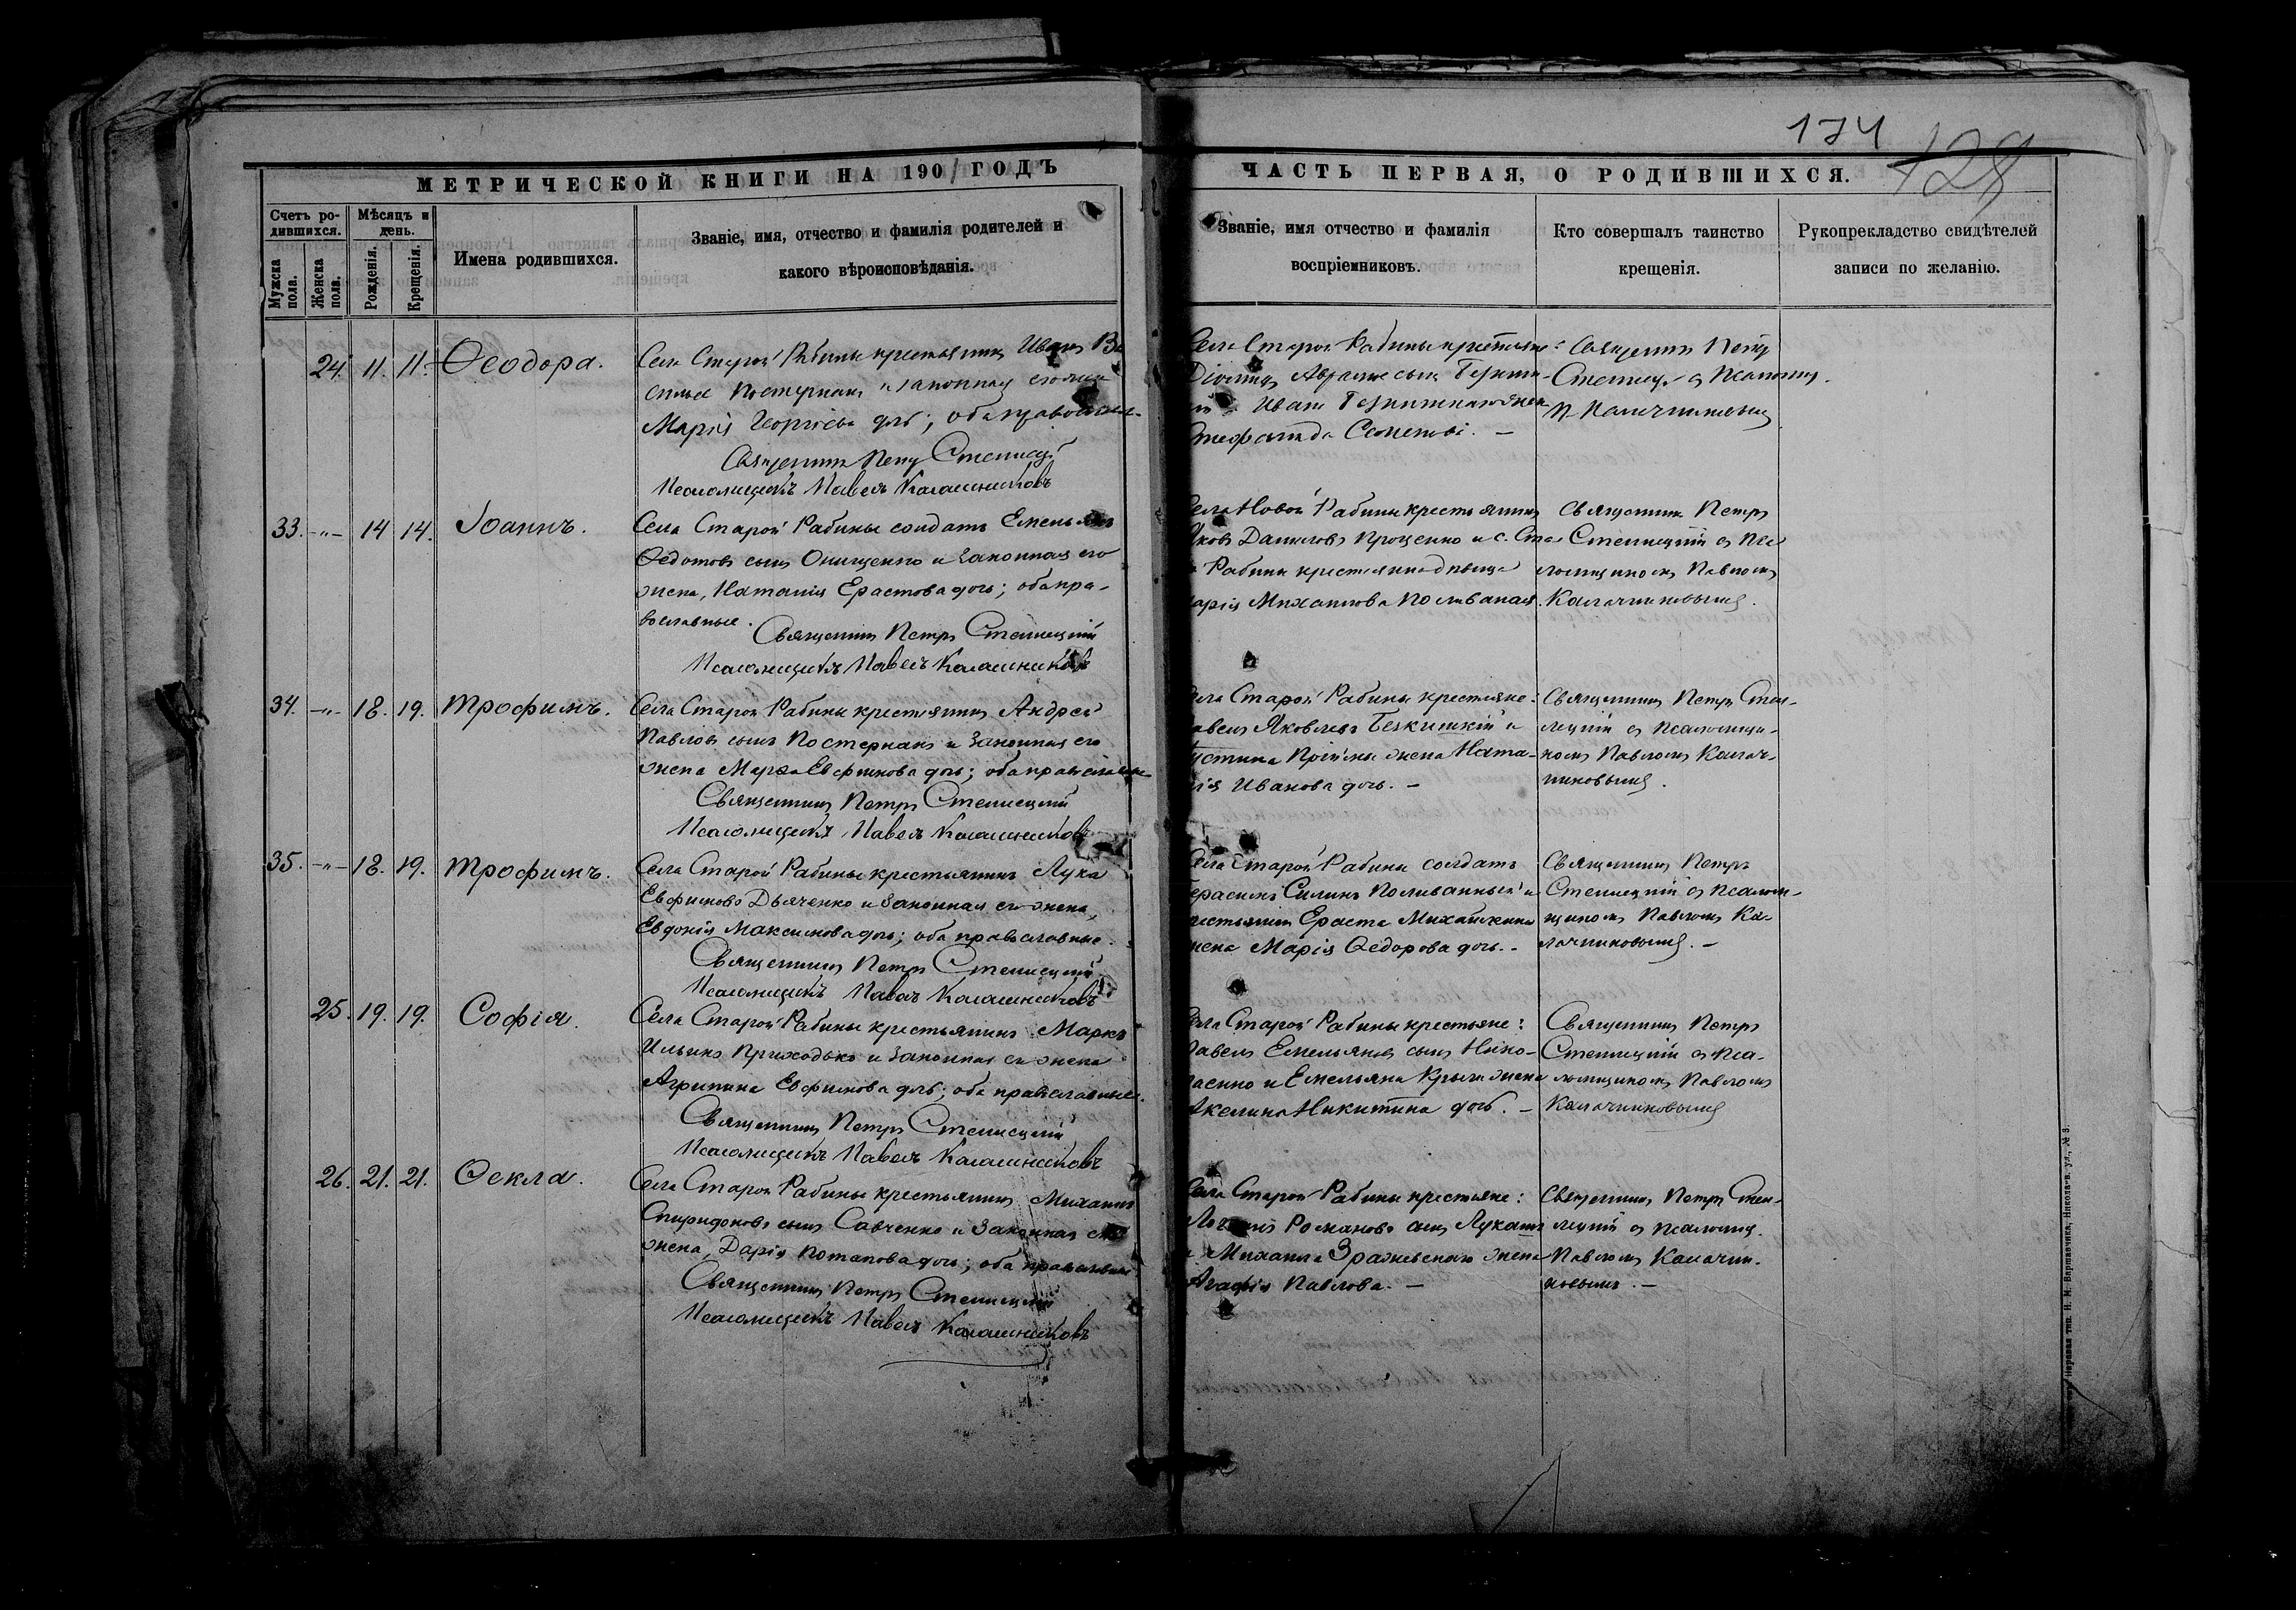 174
128
МЕТРИЧЕСКОЙ КНИГИ НА 1901 ГОДЪ
Счетъ ро-
дившихся.
Мѣсяцъ и
день.
Мужска
пола.
Женска
пола.
Рожденія.
Крещенія.
Имена родившихся.
Званіе, имя, отчество и фамилія родителей и
какого вѣроисповѣданія.
24. 11. 11. Ѳеодора.
Села Старой Рабины крестьянинъ Иванъ Ва
сильев Постернакъ и законная его жена
Марія Георгіева дочь; оба православн
Священникъ Петръ Стеллецкій
Псаломщикъ Павелъ Калашниковъ
33. -"- 14 14. Іоаннъ.
Села Старой Рабины солдатъ Емельянъ
Ѳедотовъ сынъ Онищенко и законная его
жена, Наталія Ерастова дочь; оба пра-
вославные.
Священникъ Петръ Стеллецкій
Псаломщикъ Павелъ Калашниковъ
34. -"- 18. 19. Трофимъ.
Села Старой Рабины крестьянинъ Андрей
Павловъ сынъ Постернакъ и законная его
жена Марѳа Евфимова дочь; оба православные
Священникъ Петръ Стеллецкій
Псаломщикъ Павелъ Калашниковъ
35. -"- 18. 19. Трофимъ.
Села Старой Рабины крестьянинъ Лука
Евфимовъ Дьяченко и законная его жена,
Евдокія Максимова дочь; оба православные.
Священникъ Петръ Стеллецкій
Псаломщикъ Павелъ Калашниковъ
25. 19. 19. Софія.
Села Старой Рабины крестьянинъ Маркъ
Ильинъ Приходько и законная его жена
Агрипина Евфимова дочь; оба православные.
Священникъ Петръ Стеллецкій
Псаломщикъ Павелъ Калашниковъ
26. 21. 21. Ѳекла.
Села Старой Рабины крестьянинъ Михаилъ
Спиридоновъ сынъ Савченко и законная его
жена, Дарія Потапова дочь; оба православные
Священникъ Петръ Стеллецкій
Псаломщикъ Павелъ Калашниковъ
ЧАСТЬ ПЕРВАЯ, О РОДИВШИХСЯ.
Званіе, имя отчество и фамилія
воспріемниковъ.
Кто совершалъ таинство
крещенія.
Рукоприкладство свидѣтелей
записи по желанію.
Села Старой Рабины крестьяне:
Авраміевъ сынъ
Ивана жена
Стефанида Семенова. —
Священникъ Петръ
Стеллецкій съ Псаломщ.
П. Калашниковымъ
Села Новой Рабины крестьянинъ
Яковъ Даниловъ Проценко и с. Ста
Рабины крестьянка дѣвица
арія Михаилова Поливаная.
Священникъ Петръ
Стеллецкій съ Пса
ломщикомъ Павломъ
Калашниковымъ.
Села Старой Рабины крестьяне:
авелъ Яковлевъ Безкишкій и
устина Проймы жена Ната-
лія Иванова дочь. —
Священникъ Петръ Стел-
лецкій съ Псаломщи-
комъ Павломъ Калаш-
никовымъ.
Села Старой Рабины солдатъ
ерасимъ Силинъ Поливанный и
рестьянина Ераста Михайленка
жена Марія Ѳедорова дочь. —
Священникъ Петръ
Стеллецкій съ Псалом-
щикомъ Павломъ Ка-
лашниковымъ. —
Села Старой Рабины крестьяне:
авелъ Емельяновъ сынъ Нико-
лаенко и Емельяна Крыла жена
Акелина Никитина дочь. —
Священникъ Петръ
Стеллецкій съ Пса-
ломщикомъ Павломъ
Калашниковымъ
Села Старой Рабины крестьяне:
Романовъ сынъ Лукашъ
и Михаила Зражевскаго жена
Агафія Павлова. —
Священникъ Петръ Стел-
лецкій съ Псаломщ.
Павломъ Калашни-
ковымъ. —
Паровая тип. И. М. Варшавчика, Никола-в. ул., № 3.